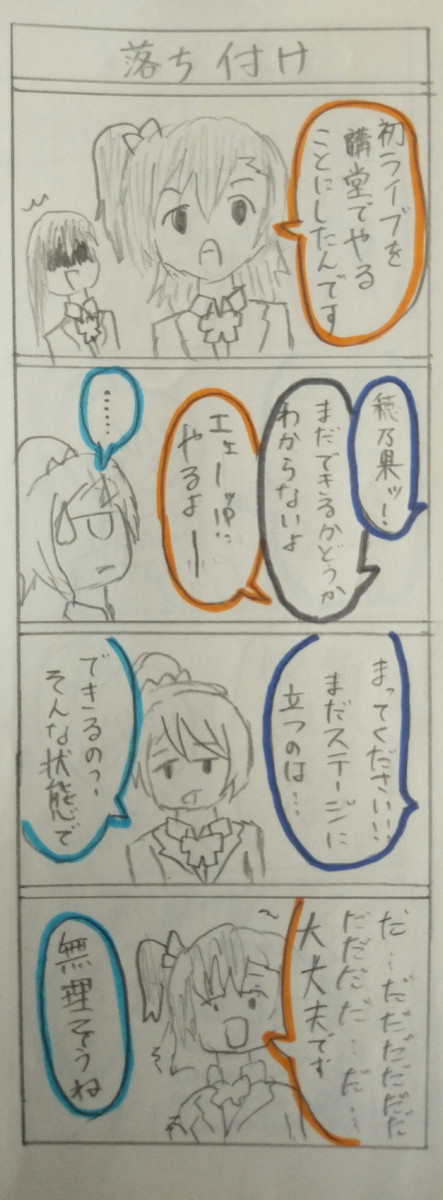 落ち付け
初ライブを
講堂でやる
ことにしたんです
穂乃果ッ!
まだできるかどうか
わからないよ
エェーッ!!?
やるよー
……
まってください!!
まだステージに
立つのは…
できるのっ、
そんな状態で
だ…だだだだだ
だだだだ…だ…
大丈夫です
無理そうね